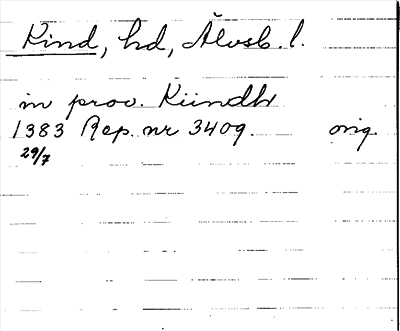 Kind, hd, Älvsb. l.
in prov. Kiindh
1383 Rep. nr 3409. orig.
29/7